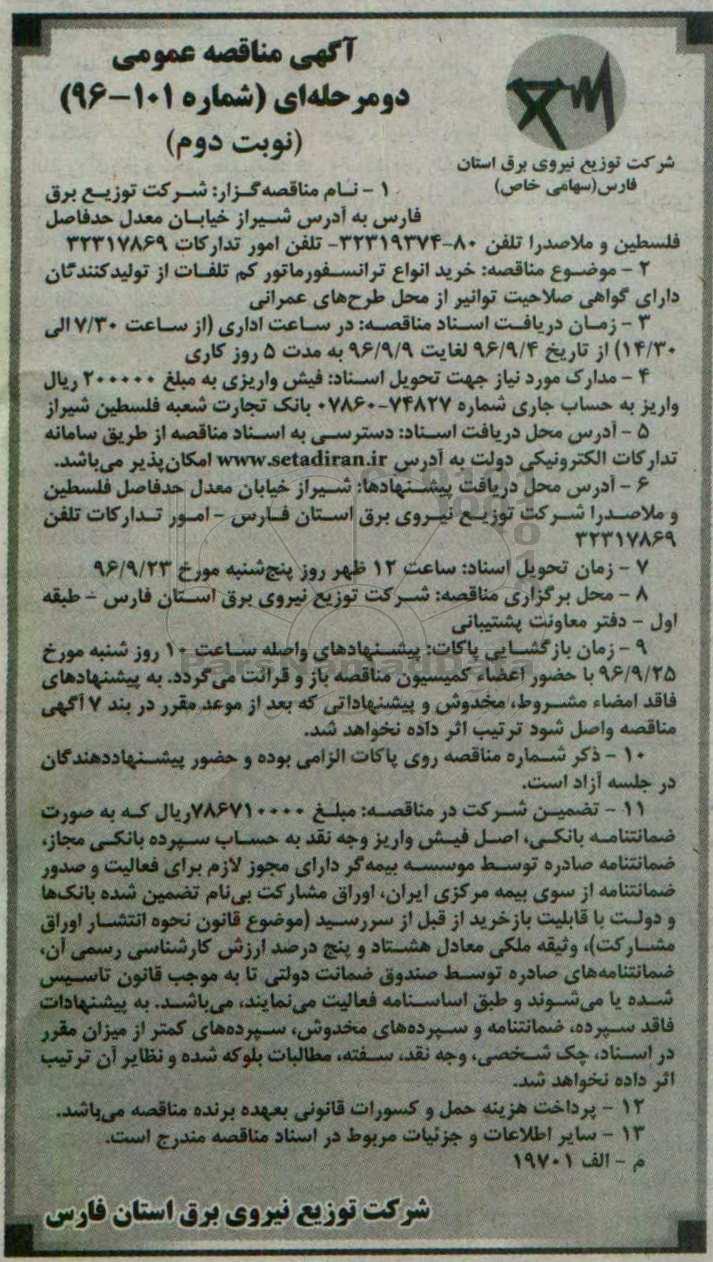 آگهی مناقصه عمومی
دومرحله‌ای (شماره ۱۰۱-۹۶)
(نوبت دوم)
شرکت توزیع نیروی برق استان
فارس(سهامی خاص)
۱ - نام مناقصه‌گزار: شرکت توزیع برق
فارس به آدرس شیراز خیابان معدل حدفاصل
فلسطین و ملاصدرا تلفن ۸۰-۳۲۳۱۹۳۷۴- تلفن امور تدارکات ۳۲۳۱۷۸۶۹
۲ - موضوع مناقصه: خرید انواع ترانسفورماتور کم تلفات از تولیدکنندگان
دارای گواهی صلاحیت توانیر از محل طرح‌های عمرانی
۳ - زمان دریافت اسناد مناقصه: در ساعت اداری (از ساعت ۷/۳۰ الی
۱۴/۳۰) از تاریخ ۹۶/۹/۴ لغایت ۹۶/۹/۹ به مدت ۵ روز کاری
۴ - مدارک مورد نیاز جهت تحویل اسناد: فیش واریزی به مبلغ ۲۰۰۰۰۰ ریال
واریز به حساب جاری شماره ۷۴۸۲۷-۰۷۸۶۰ بانک تجارت شعبه فلسطین شیراز
۵ - آدرس محل دریافت اسناد: دسترسی به اسناد مناقصه از طریق سامانه
تدارکات الکترونیکی دولت به آدرس www.setadiran.ir امکان‌پذیر می‌باشد.
۶ - آدرس محل دریافت پیشنهادها: شیراز خیابان معدل حدفاصل فلسطین
و ملاصدرا شرکت توزیع نیروی برق استان فارس - امور تدارکات تلفن
۳۲۳۱۷۸۶۹
۷ - زمان تحویل اسناد: ساعت ۱۲ ظهر روز پنج‌شنبه مورخ ۹۶/۹/۲۳
۸ - محل برگزاری مناقصه: شرکت توزیع نیروی برق استان فارس - طبقه
اول - دفتر معاونت پشتیبانی
۹ - زمان بازگشایی پاکات: پیشنهادهای واصله ساعت ۱۰ روز شنبه مورخ
۹۶/۹/۲۵ با حضور اعضاء کمیسیون مناقصه باز و قرائت می‌گردد. به پیشنهادهای
فاقد امضاء مشروط، مخدوش و پیشنهاداتی که بعد از موعد مقرر در بند ۷ آگهی
مناقصه واصل شود ترتیب اثر داده نخواهد شد.
۱۰ - ذکر شماره مناقصه روی پاکات الزامی بوده و حضور پیشنهاددهندگان
در جلسه آزاد است.
۱۱ - تضمین شرکت در مناقصه: مبلغ ۷۸۶۷۱۰۰۰۰ریال که به صورت
ضمانتنامه بانکی، اصل فیش واریز وجه نقد به حساب سپرده بانکی مجاز،
ضمانتنامه صادره توسط موسسه بیمه‌گر دارای مجوز لازم برای فعالیت و صدور
ضمانتنامه از سوی بیمه مرکزی ایران، اوراق مشارکت بی‌نام تضمین شده بانک‌ها
و دولت با قابلیت بازخرید از قبل از سررسید (موضوع قانون نحوه انتشار اوراق
مشارکت)، وثیقه ملکی معادل هشتاد و پنج درصد ارزش کارشناسی رسمی آن،
ضمانتنامه‌های صادره توسط صندوق ضمانت دولتی تا به موجب قانون تاسیس
شده یا می‌شوند و طبق اساسنامه فعالیت می‌نمایند، می‌باشد. به پیشنهادات
فاقد سپرده، ضمانتنامه و سپرده‌های مخدوش، سپرده‌های کمتر از میزان مقرر
در اسناد، چک شخصی، وجه نقد، سفته، مطالبات بلوکه شده و نظایر آن ترتیب
اثر داده نخواهد شد.
۱۲ - پرداخت هزینه حمل و کسورات قانونی بعهده برنده مناقصه می‌باشد.
۱۳ - سایر اطلاعات و جزئیات مربوط در اسناد مناقصه مندرج است.
م - الف ۱۹۷۰۱
شرکت توزیع نیروی برق استان فارس
ParsNamadData